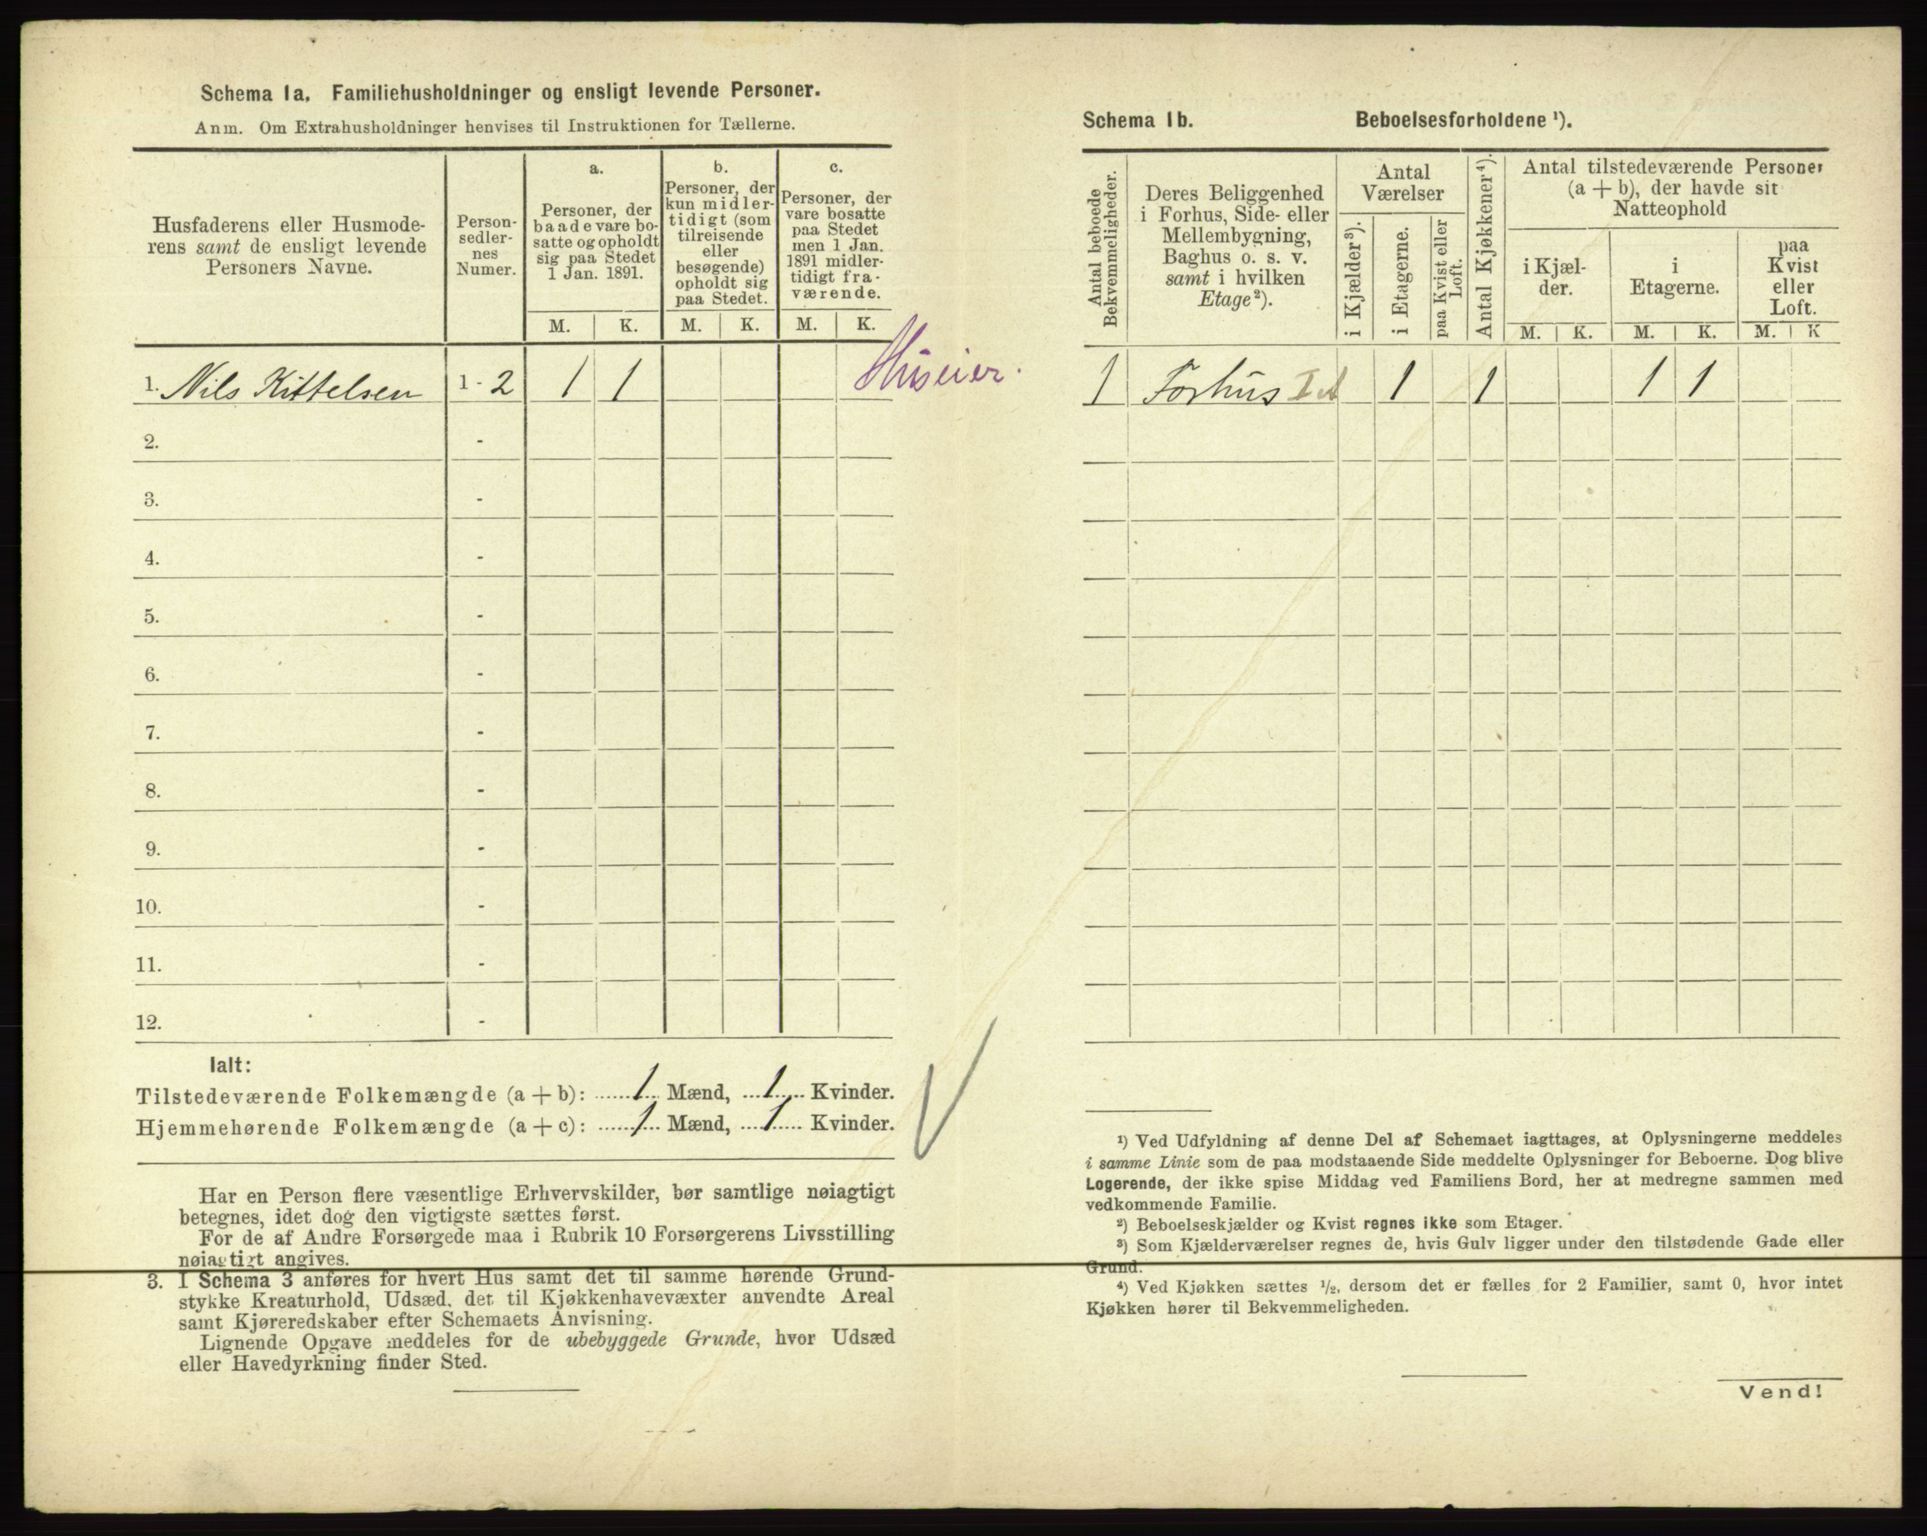 Schema 1a. Familiehusholdninger og ensligt levende Personer.
Anm. Om Extrahusholdninger henvises til Instruktionen for Tællerne.
Husfaderens eller Husmode-
rens samt de ensligt levende
Personers Navne.
Person-
sedler-
nes
Numer.
a.
Personer, der
baade vare bo-
satte og opholdt
sig paa Stedet
1 Jan. 1891.
b.
Personer, der
kun midler-
tidigt (som
tilreisende
eller
besøgende)
opholdt sig
paa Stedet.
c.
Personer, der
vare bosatte
paa Stedet
men 1 Jan.
1891 midler-
tidigt fra-
værende.
M. K. M. K. M. K.
1. Nils Kittelsen 1 - 2 1 1 Huseier.
2. -
3. -
4. -
5. -
6. -
7. -
8. -
9. -
10. -
11. -
12. -
Ialt:
Tilstedeværende Folkemængde (a + b): 1 Mænd, 1 Kvinder.
Hjemmehørende Folkemængde (a + c): 1 Mænd, 1 Kvinder.
Har en Person flere væsentlige Erhvervskilder, bør samtlige nøiagtigt
betegnes, idet dog den vigtigste sættes først.
For de af Andre Forsørgede maa i Rubrik 10 Forsørgerens Livsstilling
nøiagtigt angives.
3. I Schema 3 anføres for hvert Hus samt det til samme hørende Grund-
stykke Kreaturhold, Udsæd, det til Kjøkkenhavevæxter anvendte Areal
samt Kjøreredskaber efter Schemaets Anvisning.
Lignende Opgave meddeles for de ubebyggede Grunde, hvor Udsæd
eller Havedyrkning finder Sted.
Schema 1b. Beboelsesforholdene ¹).
Antal beboede
Bekvemmeligheder.
Deres Beliggenhed
i Forhus, Side- eller
Mellembygning,
Baghus o. s. v.
samt i hvilken
Etage²).
Antal
Værelser
i Kjælder³).
i Etagerne.
paa Kvist eller
Loft.
Antal Kjøkkener⁴).
Antal tilstedeværende Personer
(a + b), der havde sit
Natteophold
i Kjæl-
der.
i
Etagerne.
paa
Kvist
eller
Loft.
M. K. M. K. M. K
1 Forhus 1 1 1 1
¹) Ved Udfyldning af denne Del af Schemaet iagttages, at Oplysningerne meddeles
i samme Linie som de paa modstaaende Side meddelte Oplysninger for Beboerne. Dog blive
Logerende, der ikke spise Middag ved Familiens Bord, her at medregne sammen med
vedkommende Familie.
²) Beboelseskjælder og Kvist regnes ikke som Etager.
³) Som Kjælderværelser regnes de, hvis Gulv ligger under den tilstødende Gade eller
Grund.
⁴) Ved Kjøkken sættes ½, dersom det er fælles for 2 Familier, samt 0, hvor intet
Kjøkken hører til Bekvemmeligheden.
Vend!